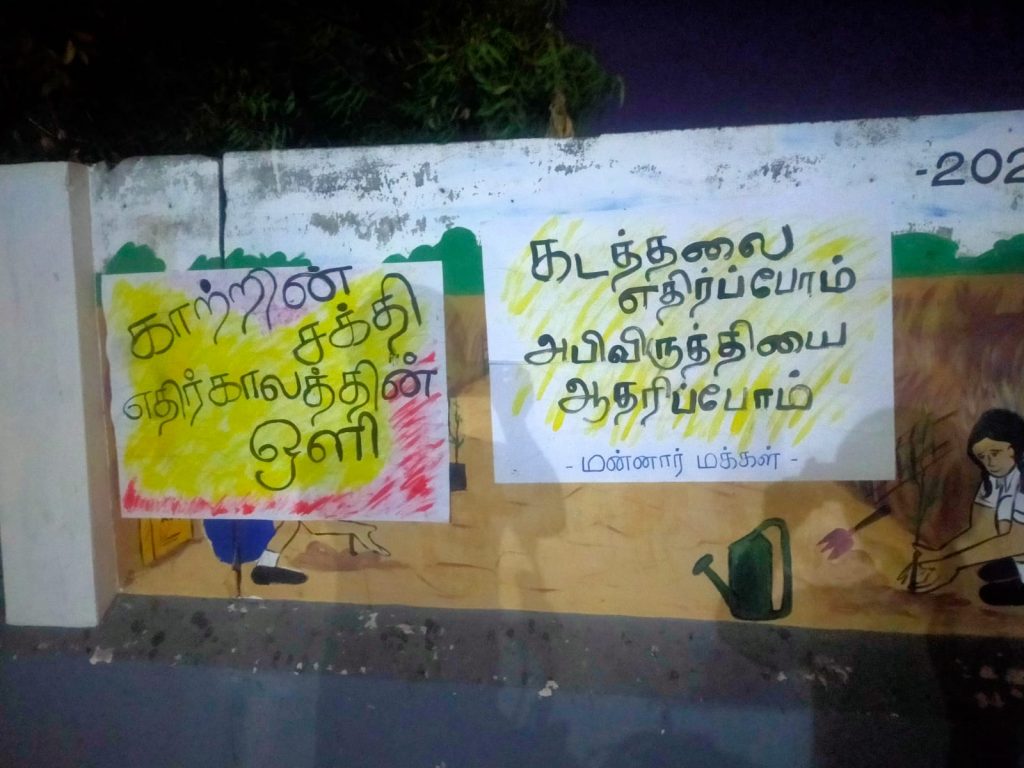 காற்றின்
சக்தி
எதிர்காலத்தின்
ஒளி
கடத்தலை
எதிர்ப்போம்
அபிவிருத்தியை
ஆதரிப்போம்
- மன்னார் மக்கள் -
-202